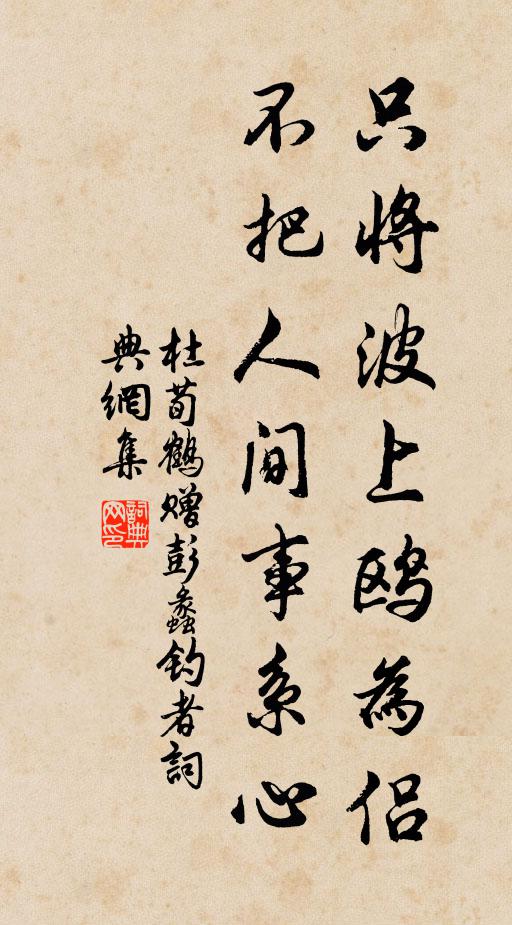 只將波上鸥為侣
不把人间事系心
杜荀鹤赠彭蠡钓者詞
典網集
詞典
网印